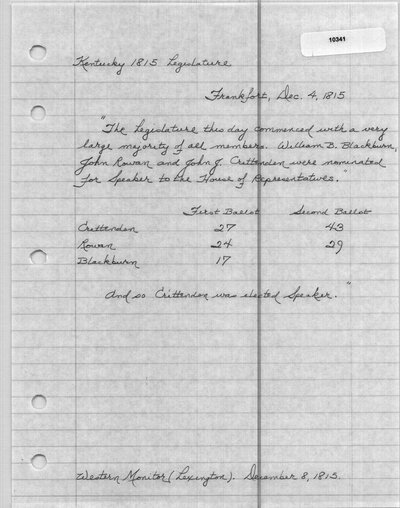 10341
Kentucky 1815 Legislature
Frankfort, Dec. 4, 1815
"The Legislature this day commenced with a very
large majority of all members. William B. Blackburn,
John Rowan and John J. Crittenden were nominated
for Speaker to the House of Representatives."
First Ballot Second Ballot
Crittenden 27 43
Rowan 24 29
Blackburn 17
And so Crittenden was elected Speaker."
Western Monitor (Lexington). December 8, 1815.